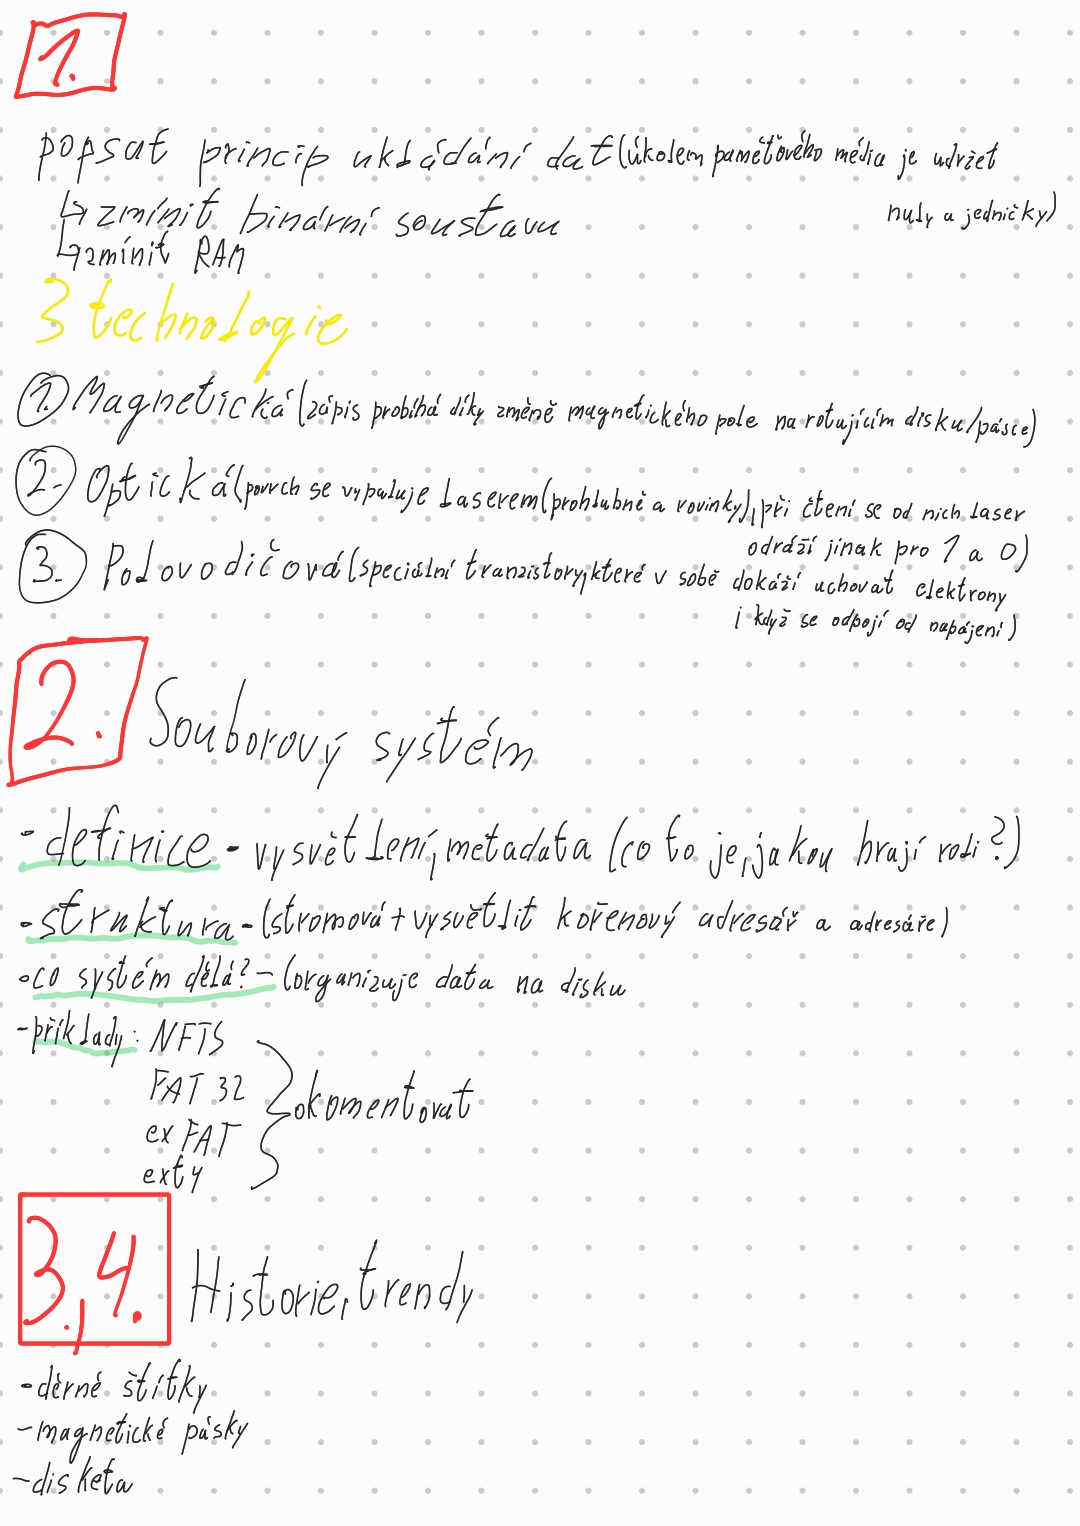 1.
popsat princip ukládání dat (úkolem paměťového média je udržet
nuly a jedničky)
↳ zmínit binární soustavu
↳ zmínit RAM
3 technologie
1. Magnetická (zápis probíhá díky změně magnetického pole na rotujícím disku/pásce)
2. Optická (povrch se vypaluje laserem (prohlubně a rovinky), při čtení se od nich laser
odráží jinak pro 1 a 0)
3. Polovodičová (speciální tranzistory, které v sobě dokáží uchovat elektrony
i když se odpojí od napájení)
2. Souborový systém
- definice - vysvětlení, metadata (co to je, jakou hrají roli?)
- struktura - (stromová + vysvětlit kořenový adresář a adresáře)
- co systém dělá? - (organizuje data na disku
- příklady: NFTS
FAT 32
exFAT
ext4
okomentovat
3.,4. Historie, trendy
- děrné štítky
- magnetické pásky
- disketa